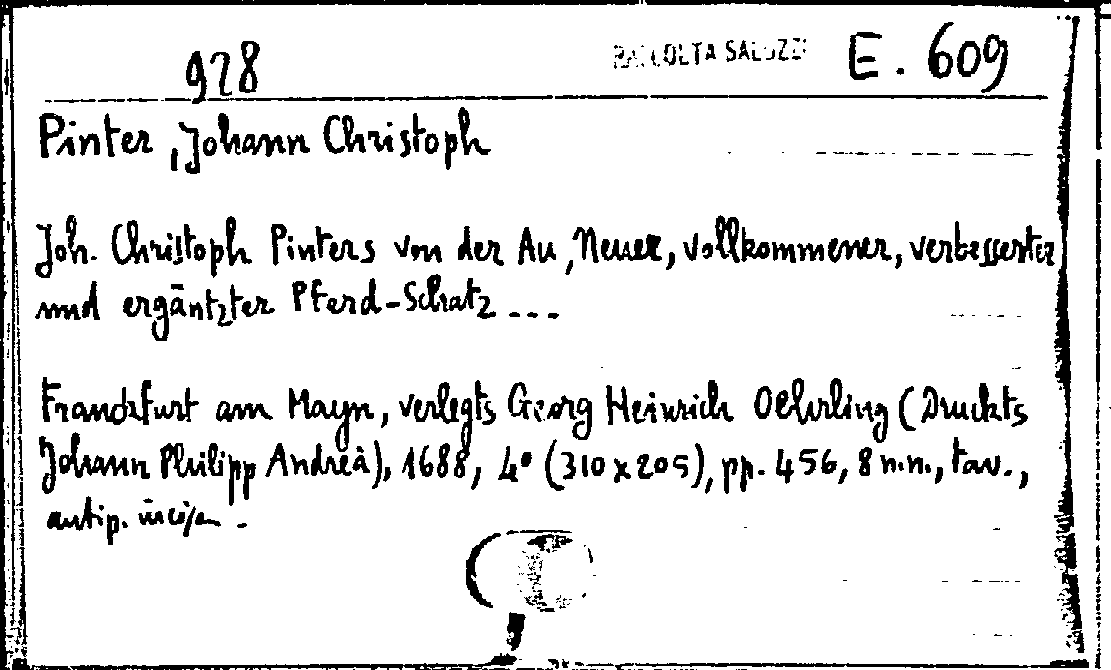 928 RACCOLTA SALUZZI E. 609
Pinter, Johann Christoph
Joh. Christoph Pinters von der Au, Neuer, vollkommener, verbesserter
und ergäntzter Pferd-Schatz ...
Franckfurt am Mayn, verlegts Georg Heinrich Oehrling (Druckts
Johann Philipp Andreä), 1688, 4° (310 x 205), pp. 456, 8 n.n., tav.,
antip. incisa.